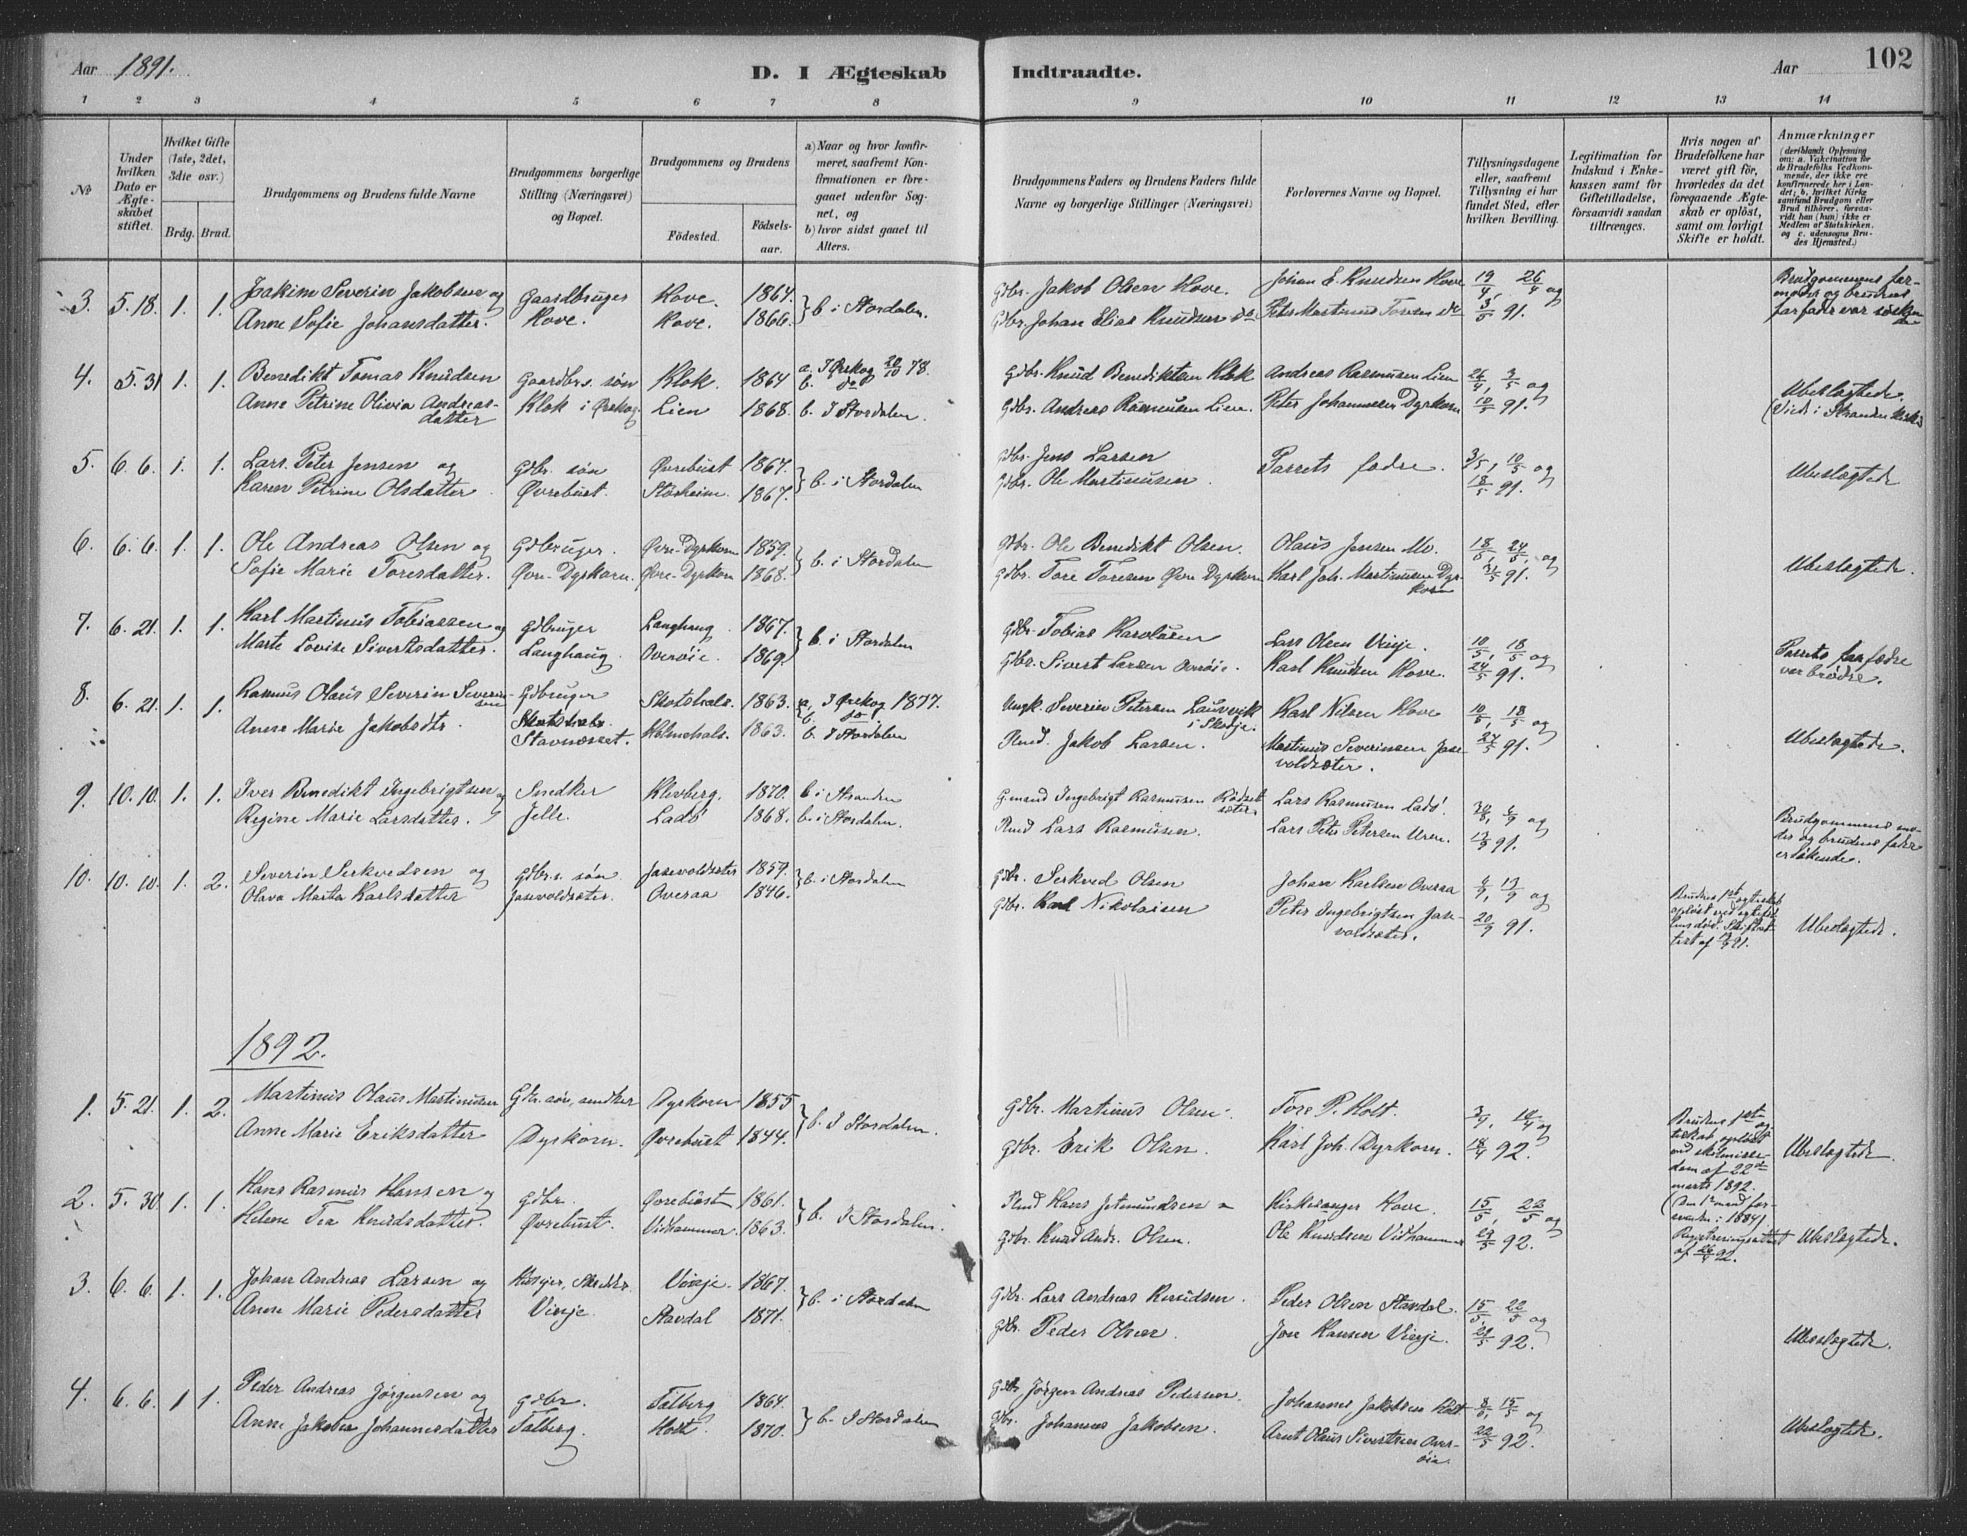 Aar 1891.
D. I Ægteskab Indtraadte.
Aar 102
1 2 3 4 5 6 7 8 9 10 11 12 13 14
No
Under hvilken Dato er Ægteskabet stiftet.
Hvilket Gifte (1ste, 2det, 3die osv.)
Brdg. Brud.
Brudgommens og Brudens fulde Navne
Brudgommens borgerlige Stilling (Næringsvei) og Bopæl.
Brudgommens og Brudens
Födested. Födselsaar.
a) Naar og hvor konfirmeret, saafremt Konfirmationen er foregaaet udenfor Sognet, og
b) hvor sidst gaaet til Alters.
Brudgommens Faders og Brudens Faders fulde Navne og borgerlige Stillinger (Næringsvei)
Forlovernes Navne og Bopæl.
Tillysningsdagene eller, saafremt Tillysning ei har fundet Sted, efter hvilken Bevilling.
Legitimation for Indskud i Enkekassen samt for Giftetilladelse, forsaavidt saadan tiltrænges.
Hvis nogen af Brudefolkene har været gift för, hvorledes da det foregaaende Ægteskab er oplöst, samt om lovligt Skifte er holdt.
Anmærkninger (deriblandt Oplysning om: a. Vakcination for de Brudefolks Vedkommende, der ikke ere konfirmerede her i Landet; b. hvilket Kirkesamfund Brudgom eller Brud tilhörer, forsaavidt han (hun) ikke er Medlem af Statskirken, og c. udensogns Brudes Hjemsted.)
3. 5.18. 1. 1. Joakim Severin Jakobsen og Gaardbruger Hove. 1864. b i Stordalen. Gdbr. Jakob Olsen Hove. Johan E. Knudsen Hove 19/4, 26/4 og Brudgommens farmoder og brudens
Anne Sofie Johansdatter. Hove. Hove. 1866. Gdbr. Johan Elias Knudsen do Peter Martinus Toresen do 3/5 91. farfader var söskende
4. 5.31 1. 1. Benedikt Tomas Knudsen Gaardbrs. søn Klok. 1864 a. I Ørskog 20/10 78. b. do Gdbr. Knud Benediktsen Klok Andreas Rasmusen Lien 26/4, 3/5 og Ubeslægtede.
Anne Petrine Olivia Andreasdatter Klok i Ørskog Lien 1868. b. I Stordalen. Gdbr. Andreas Rasmusen Lien. Peter Johannesen Dyrkorn 10/5 91. (Viede i Stranden kirke
5. 6.6. 1. 1. Lars Peter Jensen og Gdbr. søn Øvrebust 1867. b. i Stordalen Gdbr. Jens Larsen Parrets fædre. 3/5, 10/5 og Ubeslægtede
Karen Petrine Olsdatter. Øvrebust. Støsheim. 1867. Gdbr. Ole Martinusen 18/5 91.
6. 6.6. 1. 1. Ole Andreas Olsen og Gdbruger. Øvre-Dyrkorn 1859. b. i Stordalen Gdbr. Ole Benedikt Olsen. Olaus Jensen Mo. 18/5, 24/5, og Ubeslægtede.
Sofie Marie Toresdatter. Øvre-Dyrkorn. Øvre-Dyrkorn 1868. Gdbr. Tore Toresen Øvre Dyrkorn Karl Joh. Martinusen Dyrkorn 31/5 91.
7. 6.21. 1. 1. Karl Martinus Tobiassen og Gdbruger Langhaug 1867. b. i Stordalen Gdbr. Tobias Karolusen Lars Olsen Vinje. 10/5, 18/5 og Parrets farfædre
Marte Lovise Sivertsdatter. Langhaug. Overøie. 1869. Gdbr. Sivert Larsen Overøie. Karl Knudsen Hove. 24/5 91. var brødre.
8. 6.21. 1. 1. Rasmus Olaus Severin Severinsen Gdbruger Skotshals. 1863. a. I Ørskog 1877. b. do Ungk. Severin Petersen Laursvik i Skodje. Karl Nilsen Hove 10/5, 18/5 og
Anne Marie Jakobsdtr. Stavneset. Holmehals. 1863. b. I Stordalen Kmd. Jakob Larsen. Martinus Severinsen Jasevoldsæter. 24/5 91. Ubeslægtede.
9. 10.10. 1. 1. Iver Benedikt Ingebrigtsen og Snedker Klevberg. 1870. b i Stranden G.mand Ingebrigt Rasmusen Rødsetsæter Lars Rasmusen Ladö 30/8, 6/9 og Brudgommens moder og brudens fader
Regine Marie Larsdatter. Jelle. Ladö 1868. b. i Stordalen. Kmd Lars Rasmusen. Lars Peter Petersen Uren. 13/9 91. er søskende.
10. 10.10. 1. 2. Severin Serkvedsen og Gdbr.s søn Jasevoldsæter 1859. b. i Stordalen Gdbr. Serkved Olsen Johan Karlsen Overaa 6/9, 13/9 og Brudens 1ste ægteskab
Olava Marta Karlsdatter Jasevoldsæter. Overaa 1846. Gdbr. Karl Nikolaisen Peter Ingebrigtsen Jasevoldsæter. 20/9 91. Ubeslægtede.
1892.
1. 5.21. 1. 2. Martinus Olaus Martinusen Gdbr. søn, snedker Dyrkorn 1855 b. I Stordalen. Gdbr. Martinus Olsen. Tore P. Holt. 3/4, 10/4 og Brudens 1ste ægteskab opløst
Anne Marie Eriksdatter Dyrkorn. Øvrebust 1844. Gdbr. Erik Olsen. Karl Joh. Dyrkorn. 18/4 92. ved skilsmissedom af 22de marts 1892. Ubeslægtede.
2. 5.30. 1. 1. Hans Rasmus Hansen og Gdbr. Øvrebust 1861. b. I Stordalen. Kmd Hans Jetmundsen Kirkesanger Hove. 15/5, 22/5 og
Helene Tea Knudsdatter. Øvrebust. Vidhammer. 1863. Gdbr. Knud Andr. Olsen. Ole Knudsen Vidhammer 29/5 92. Ubeslægtede.
3. 6.6. 1. 1. Johan Andreas Larsen og Vinje. 1867. b. i Stordalen Gdbr. Lars Andreas Knudsen. Peder Olsen Stavdal. 15/5, 22/5 og
Anne Marie Pedersdatter Vinje. Stavdal 1871. Gdbr. Peder Olsen. Jon Hansen Vinje. 29/5 92. Ubeslægtede.
4. 6.6. 1 1. Peder Andreas Jørgensen og Gdbr. Talberg 1864. b. I Stordalen Gdbr Jørgen Andreas Pedersen. Johannes Jakobsen Holt 8/5, 15/5 og
Anne Jakobea Johannesdatter Talberg. Holt 1870. Gdbr. Johannes Jakobsen. Arnt Olaus Sivertsen Overøie. 22/5 92. Ubeslægtede.